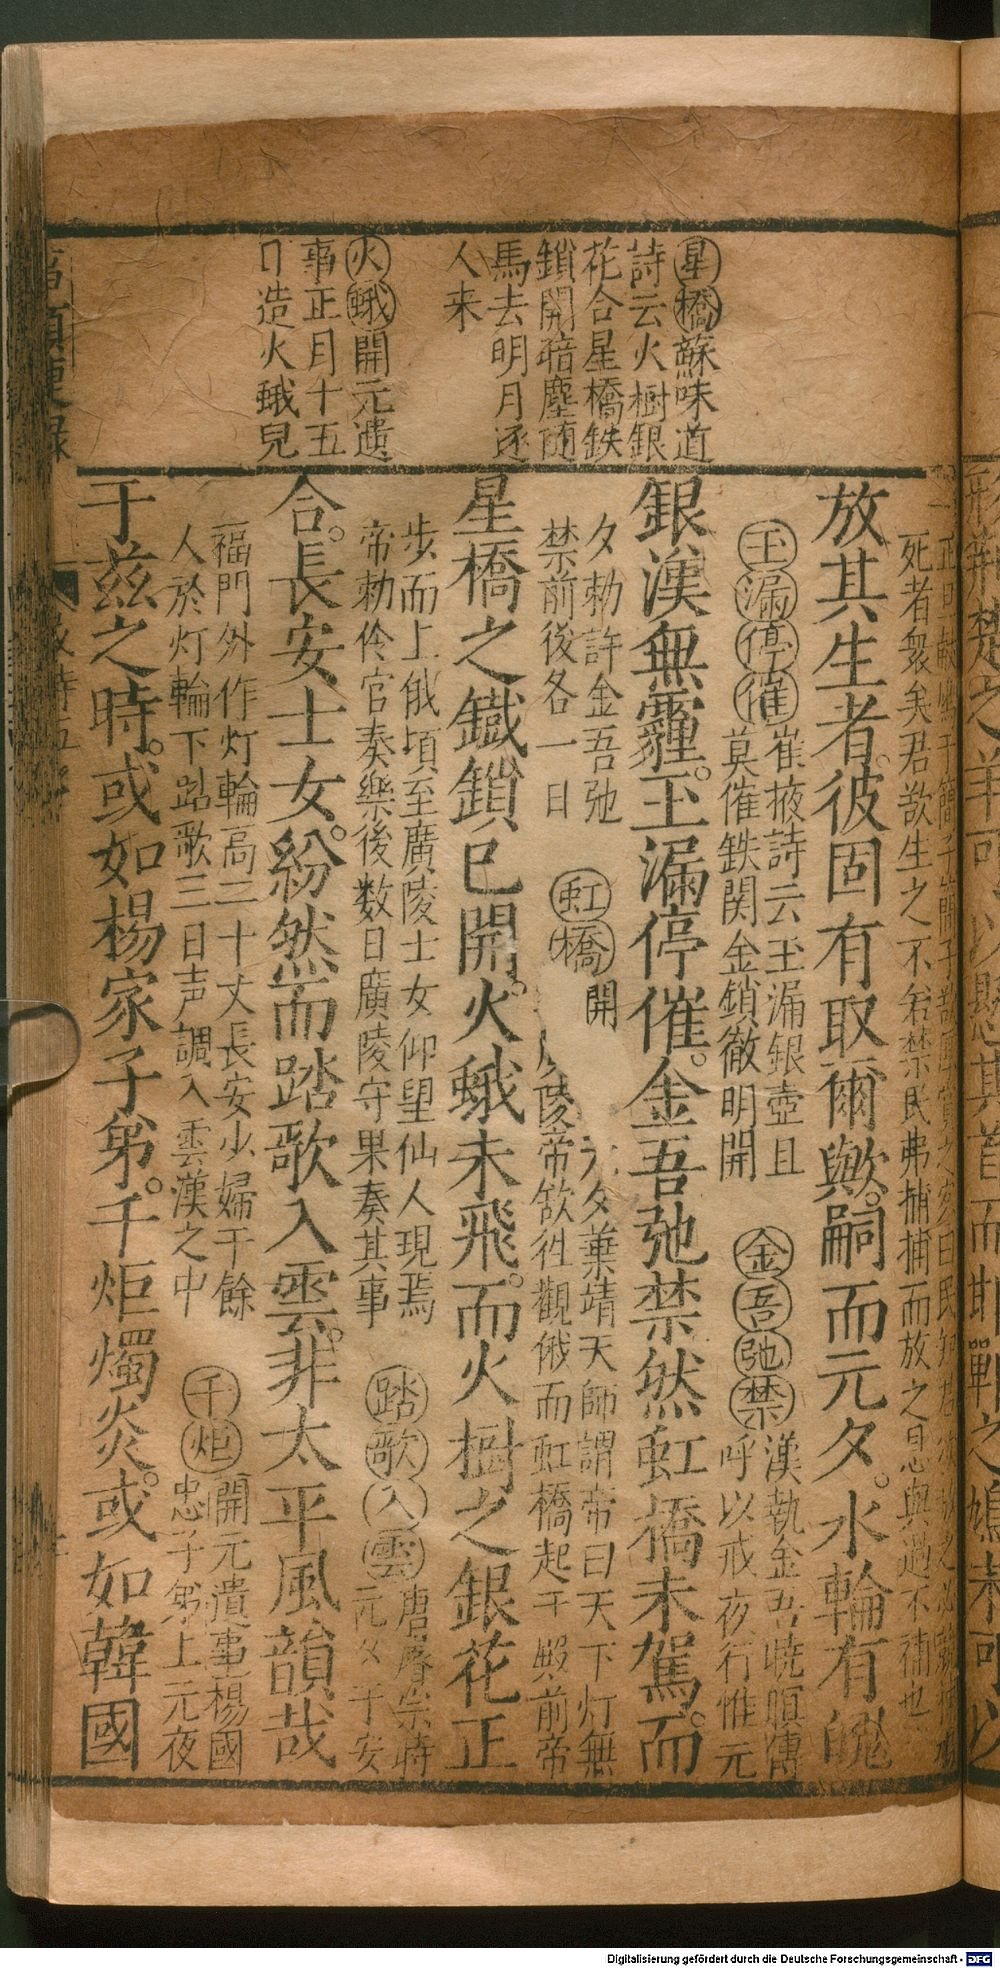 星橋蘇味道
詩云火樹銀
花合星橋鉄
鎖開暗塵随
馬去明月逐
人来
火蛾開元遺
事正月十五
日造火蛾兒
死者衆矣君欲生之不若禁民弗捕捕而放之恩與過不補也
放其生者。彼固有取爾歟。嗣而元夕。水輪有魄
玉漏停催崔掖詩云玉漏銀壺且
莫催鉄関金鎖徹明開
金吾弛禁漢執金吾暁暝傳
呼以戒夜行惟元
銀漢無霾。玉漏停催。金吾弛禁然虹橋未駕。而
夕勅許金吾弛
禁前後各一日
虹橋開
夕葉靖天師謂帝曰天下灯無
陵帝欲徃觀俄而虹橋起于殿前帝
星橋之鐡鎖已開。火蛾未飛。而火樹之銀花正
步而上俄頃至廣陵士女仰望仙人現焉
帝勅伶官奏樂後数日廣陵守果奏其事
踏歌入雲唐睿宗時
元夕于安
合。長安士女。紛然而踏歌入雲。非太平風韻哉
福門外作灯輪高二十丈長安少婦千餘
人於灯輪下踏歌三日声調入雲漢之中
千炬開元遺事楊國
忠子弟上元夜
于兹之時。或如楊家子弟。千炬燭炎。或如韓國
Digitalisierung gefördert durch die Deutsche Forschungsgemeinschaft - DFG